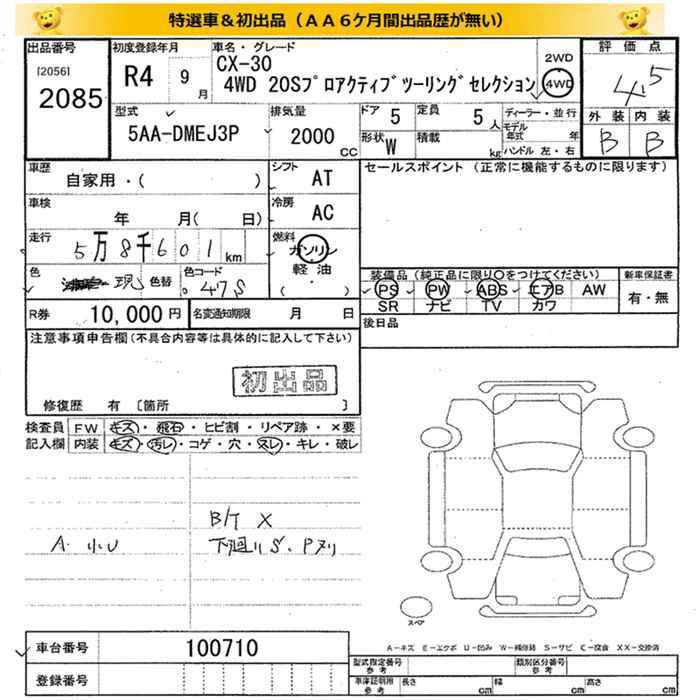 特選車＆初出品（ＡＡ６ケ月間出品歴が無い）
出品番号 初度登録年月 車名・グレード 評価点
[2056] 2085 R4 9月 CX-30 2WD
4WD 20Sﾌﾟﾛｱｸﾃｨﾌﾞﾂｰﾘﾝｸﾞｾﾚｸｼｮﾝ 4WD 4.5
型式 排気量 ドア 5 定員 5人 ディーラー・並行 外装 内装
5AA-DMEJ3P 2000CC 形状 W 積載 kg モデル年式 年 B B
ハンドル 左・右
車歴 シフト セールスポイント（正常に機能するものに限ります）
自家用・( ) AT
車検 年 月( 日) 冷房 AC
走行 5万8千601km 燃料 ガソリン
軽油
( )
色 色替 色コード 47S 装備品（純正品に限り○をつけてください） 新車保証書
PS PW ABS エアB AW 有・無
SR ナビ TV カワ
R券 10,000円 名変通知期限 月 日 後日品
注意事項申告欄（不具合内容等は具体的に記入して下さい）
初出品
修復歴 有〔箇所 〕
検査員 FW キズ・飛石・ヒビ割・リペア跡・×要
記入欄 内装 キズ・汚レ・コゲ・穴・スレ・キレ・破レ
B/T X
A・小U 下廻りS、Pヌリ
スペア
車台番号 100710
A－キズ E－エクボ U－凹み W－補修跡 S－サビ C－腐食 XX－交換済
登録番号 型式指定番号 参考 類別区分番号 参考
車庫証明用 参考 長さ cm 幅 cm 高さ cm